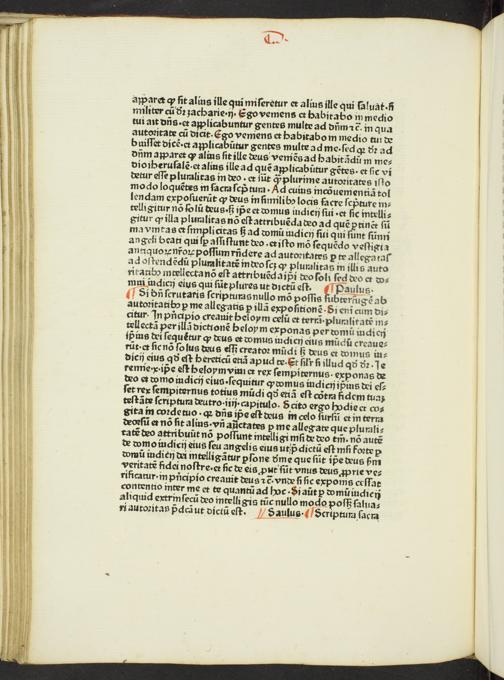 apparet ꝙ sit alius ille qui miseretur et alius ille qui saluat· si
militer cū dr̄ zacharie·ij· Ego veniens et habitabo in medio
tui ait dn̄s· et applicabuntur gentes multe ad dn̄m ⁊c̄· in qua
autoritate cū dicit· Ego veniens et habitabo in medio tui de
buisset dicē· et applicabūtur gentes multe ad me· sed qꝛ dr̄ ad
dn̄m apparet ꝙ alius sit ille deus veniēs ad habitādū in me
dio iherusalē· et alius ille ad quē applicabūtur gētes· et sic vi
detur esse pluralitas in deo· et sūt qꝫ plurime autoritates isto
modo loquētes in sacra sc̄ptura· Ad cuius incōuenientiā tol
lendam exposuerūt ꝙ deus in similibꝰ locis sacre sc̄pture in
telligitur nō solū deus· sꝫ ip̄e et domus iudicij sui· et sic intelli
gitur ꝙ illa pluralitas nō est attribuēda deo ad quē ꝑtinet sū
ma vnitas et simplicitas sꝫ ad domū iudicij sui qui sunt sūmi
angeli beati qui sp̄ assistunt deo· et isto mō sequēdo vestigia
antiquoꝝ nr̄oꝝ possum rn̄dere ad autoritates ꝑ te allegatas
ad ostendēdū pluralitatē in deo scꝫ ꝙ pluralitas in illis auto
ritatibꝰ intellecta nō est attribuēda ip̄i deo soli sed deo et do-
mui iudicij eius qui sūt plures vt dictū est· ¶ Paulus·
¶ Si dn̄ scrutaris scripturas nullo mō possis subterfugē ab
autoritatibꝰ ꝑ me allegatis ꝑ illā expositionē· Si eni cum di-
citur· In pn̄cipio creauit heloym celū et terrā· pluralitatē in-
tellectā ꝑ illā dictionē heloym exponas ꝑ domū iudicij
ip̄ius dei sequētur ꝙ deus et domus iudicij eius mūdū creaue-
rūt· et sic nō solus deus ess̄ creator mūdi sꝫ deus et domus iu-
dicij eius qd̄ est hereticū etiā apud te· Et silr̄ si illud qd̄ dr̄· Je
remie·x· ip̄e est heloym viui et rex sempiternus· exponas de
deo et domo iudicij eius· sequitur ꝙ domus iudicij ip̄ius dei es-
set rex sempiternus totius mūdi qd̄ etiā est cōtra fidem tuaꝫ
testāte scriptura deutro·iiij· capitulo· Scito ergo hodie et co-
gita in corde tuo· ꝙ dn̄s ip̄e est deus in celo sursū et in terra
deorsū et nō sit alius· vn̄ auctates ꝑ me allegate que plurali-
tatē deo attribuūt nō possunt intelligi nisi de deo tm̄· nō autē
de domo iudicij eius seu angelis eius
domū iudicij dei intelligātur ꝑsone
veritatē fidei nostre· et sic de eis
rificatur· in pn̄cipio creauit deus ⁊c̄· vnde si sic expōnis cessat
contentio inter me et te quantū ad hoc· Si aūt ꝑ domū iudicij
aliquid extrinsecū deo intelligis tūc nullo modo poss̄ salua-
ri autoritas p̄dcā vt dictū est· ¶ Saulus· ¶ Scriptura sacra